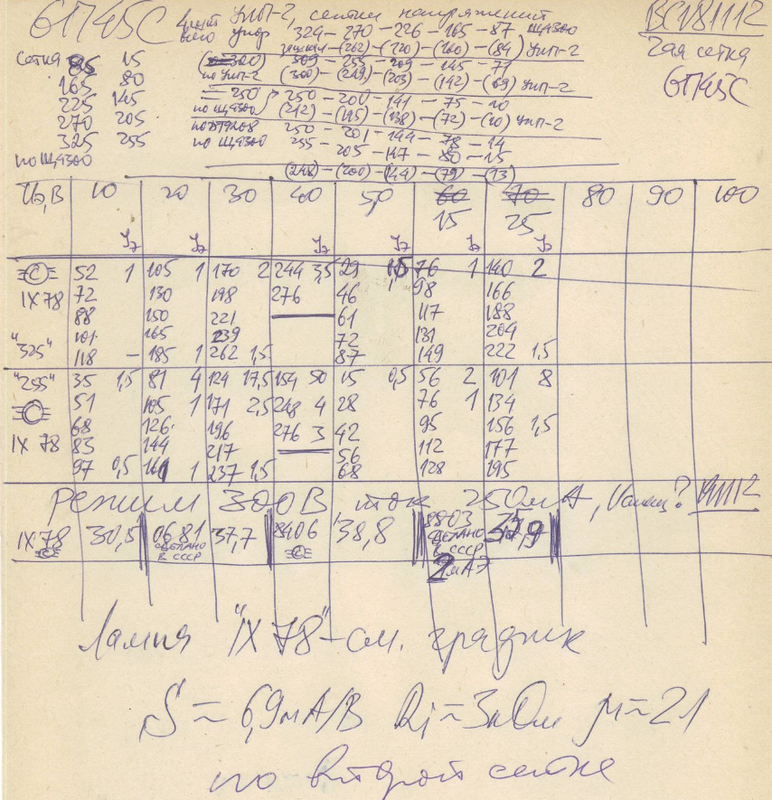 6П45С
УИП-2, сетки напряжений
324-270-226-165-87 Щ4300
ВС181112
2ая сетка
6П45С
сетка 85 15
165 80
225 145
270 205
325 255
по Щ4300
(262)-(220)-(160)-(84) УИП-2
309-255-209-145-71
по УИП-2 (300)-(249)-(203)-(142)-(69) УИП-2
=250 250-200-141-75-10
по Щ4300 (242)-(195)-(138)-(72)-(10) УИП-2
250-201-144-78-14
по Щ4300 255-205-147-80-15
(248)-(200)-(144)-(79)-(13)
Ua,В 10 20 30 40 50 60 70 80 90 100
15 25
J2 J2 J2 J2 J2 J2 J2
52 1 105 1 170 2 244 3,5 29 1,5 76 1 140 2
IX 78 72 130 198 276 46 1 98 166
88 150 221 61 117 188
101 165 239 72 131 204
"325" 118 - 185 1 262 1,5 87 149 222 1,5
"255" 35 1,5 81 4 124 17,5 154 50 15 0,5 56 2 101 8
51 105 1 171 2,5 248 4 28 76 1 134
68 126 196 276 3 42 95 156 1,5
IX 78 83 144 217 56 112 177
97 0,5 161 1 237 1,5 68 128 195
Режим 300В, ток 250мА, Uсмещ? 191112
IX 78 30,5 0681 37,7 8406 38,8 8803
сделано в СССР сделано в СССР
2мАЭ
Лампа "IX 78"-см. график
S=6,9мА/В Ri=3кОм μ=21
по второй сетке